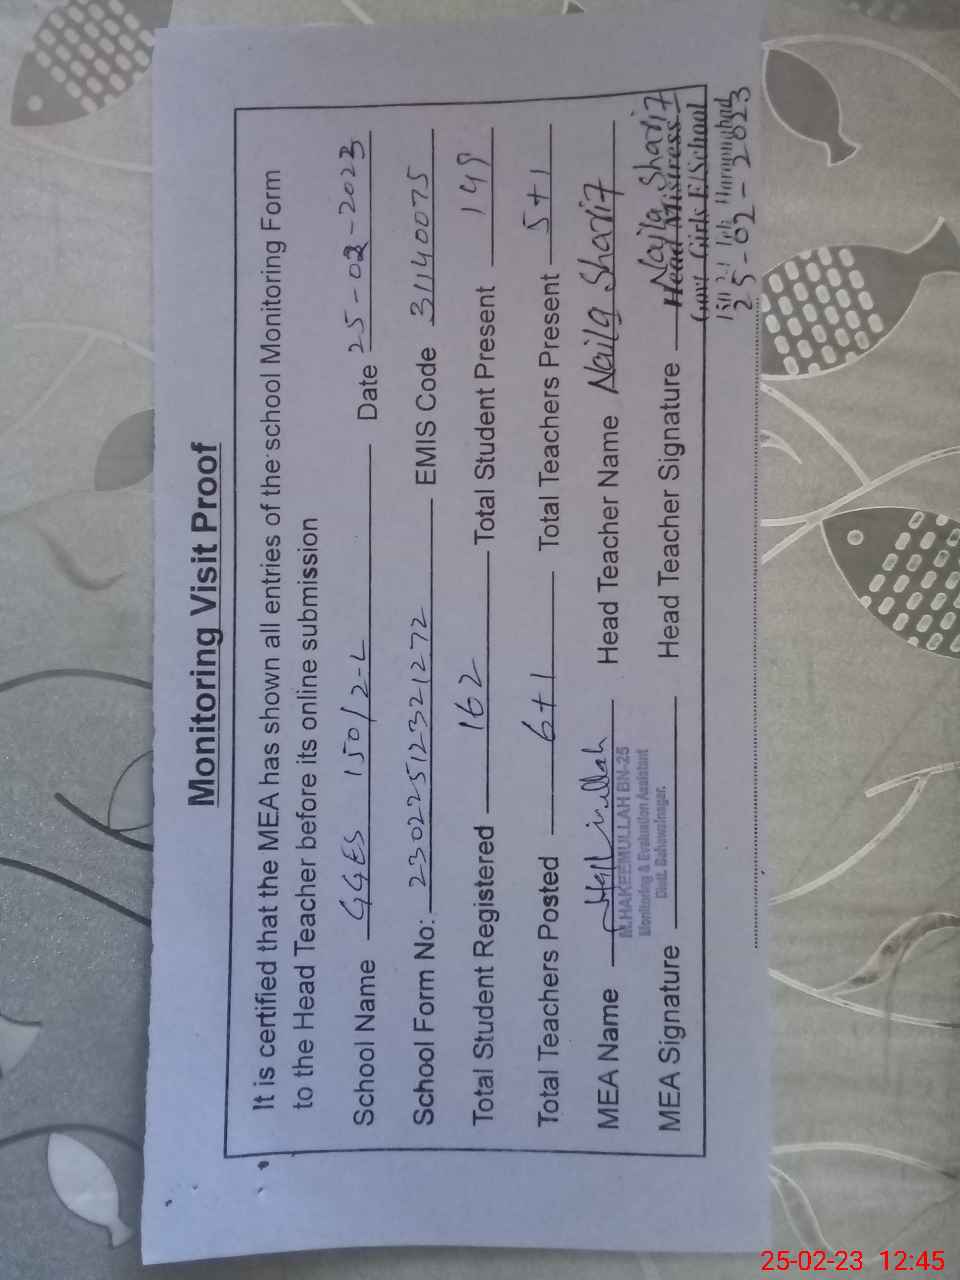 Monitoring Visit Proof
It is certified that the MEA has shown all entries of the school Monitoring Form
to the Head Teacher before its online submission
School Name GGES 150/2-L Date 25-02-2023
School Form No: 230225123212 72 EMIS Code 31140075
Total Student Registered 162 Total Student Present 149
Total Teachers Posted 6+1 Total Teachers Present 5+1
MEA Name Head Teacher Name Naila Sharif
M.HAKEEMULLAH BN-25
Monitoring & Evaluation Assistant
Distt. Bahawalnagar.
MEA Signature Head Teacher Signature Naila Sharif
Head Mistress
Govt Girls E/School
150/2-L Teh Haroonabad
25-02-2023
25-02-23 12:45